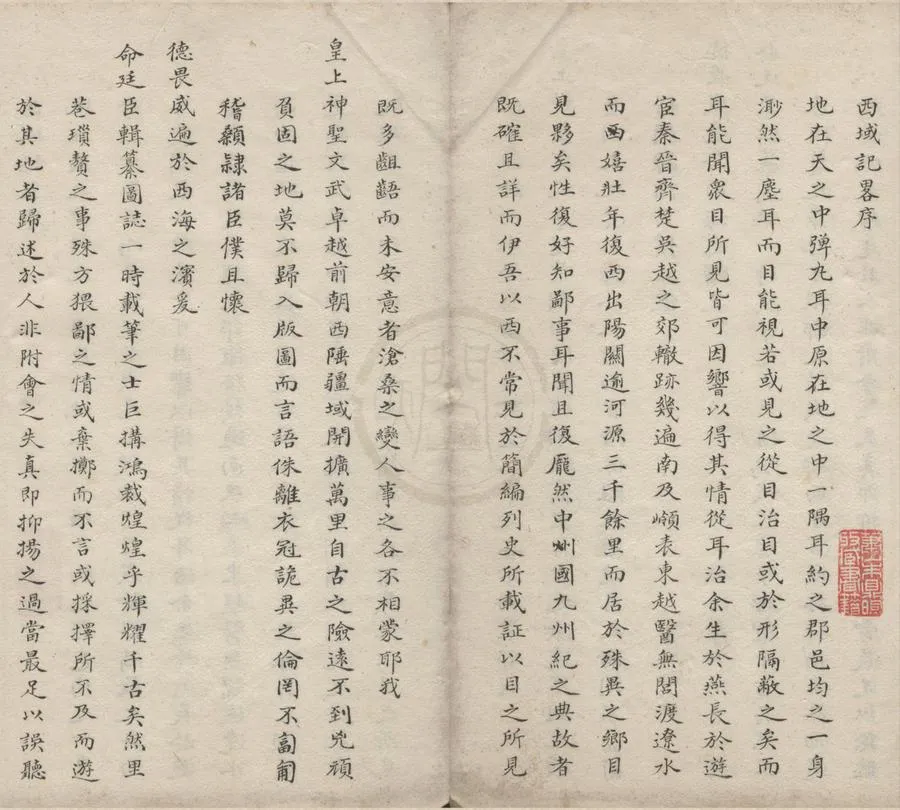 西域記畧序
地在天之中弹丸耳中原在地之中一隅耳約之郡邑均之一身
渺然一塵耳而目能視若或見之從目治目或於形隔蔽之矣而
耳能聞衆目所見皆可因響以得其情從耳治余生於燕長於遊
宦秦晉齊楚吳越之郊轍跡幾遍南及嶺表東越醫無閭渡遼水
而西嬉壯年復西出陽關逾河源三千餘里而居於殊異之鄉目
見夥矣性復好知鄙事耳聞且復龐然中州國九州紀之典故者
既確且詳而伊吾以西不常見於簡編列史所載証以目之所見
既多齟齬而未安意者滄桑之變人事之各不相蒙耶我
皇上神聖文武卓越前朝西陲疆域開擴萬里自古之險遠不到兇頑
負固之地莫不歸入版圖而言語侏離衣冠詭異之倫罔不匍匐
稽顙隷諸臣僕且懷
德畏威遍於西海之濱爰
命廷臣輯纂圖誌一時載筆之士巨搆鴻裁煌煌乎輝耀千古矣然里
巷瑣贅之事殊方猥鄙之情或棄擲而不言或採擇所不及而遊
於其地者歸述於人非附會之失真即抑揚之過當最足以誤聽